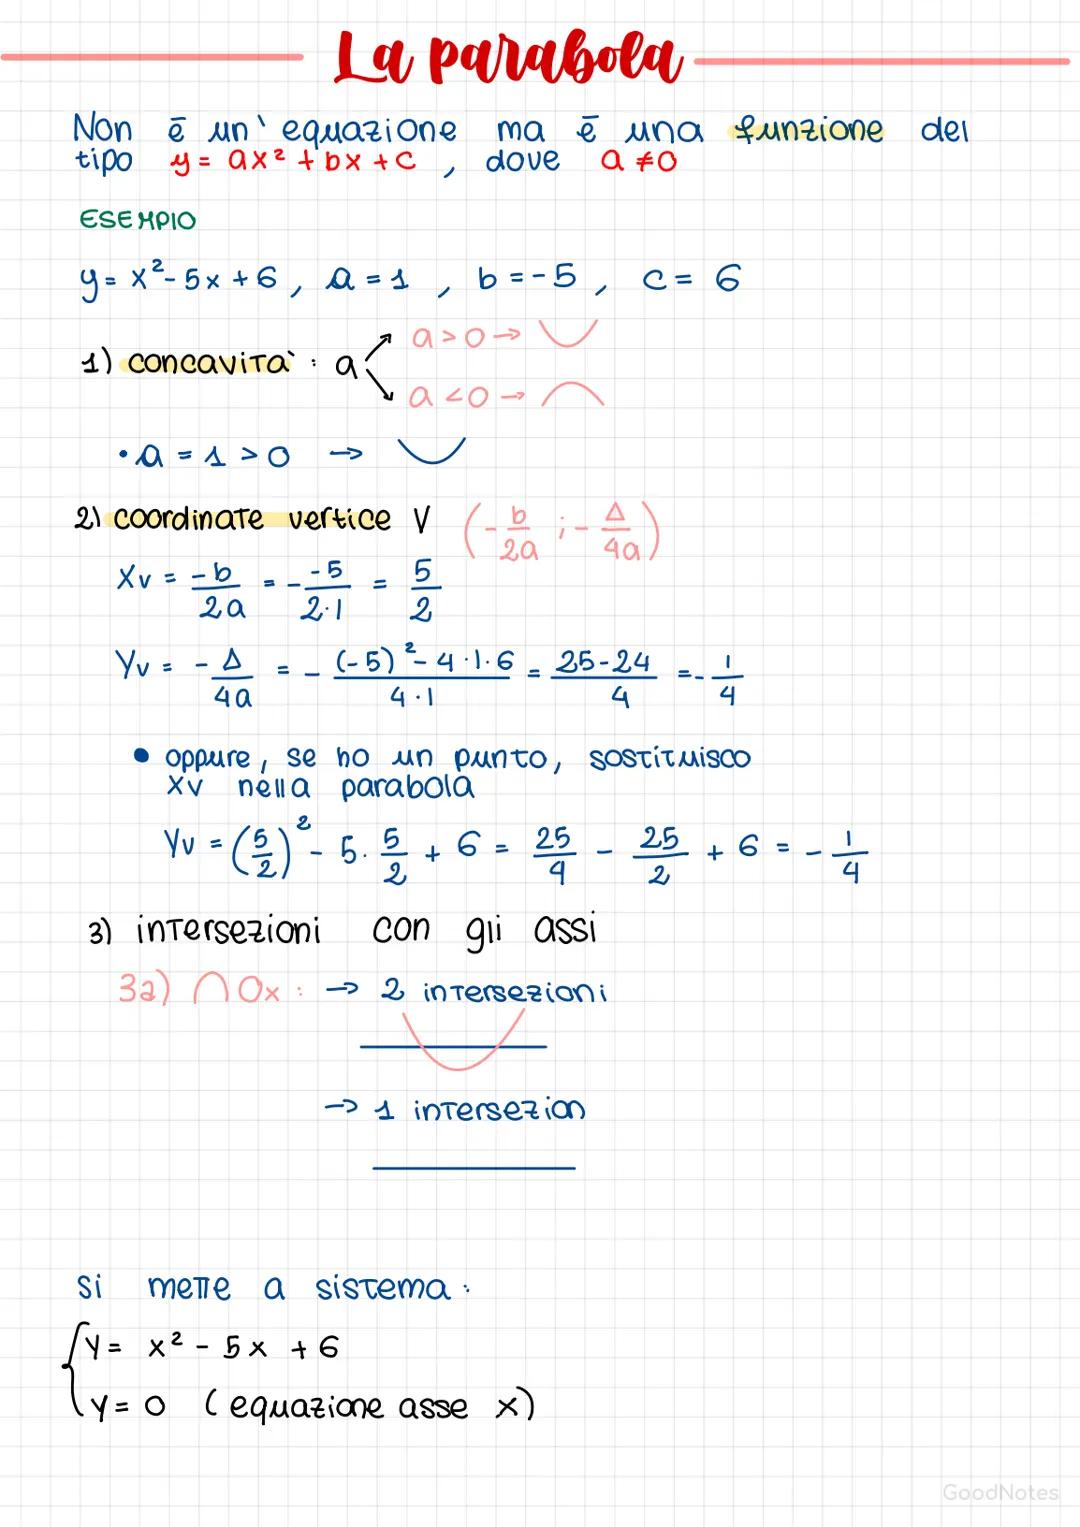 La parabola
Non ē un' equazione ma ē una funzione del
tipo y = ax² + bx + c , dove a ≠ 0
ESEMPIO
y = x² - 5x + 6 , a = 1 , b = -5 , c = 6
a > 0 →
1) concavità : a
a < 0 →
• a = 1 > 0 →
2) coordinate vertice V (- b/2a ; - Δ/4a)
Xv = -b/2a = - -5/2·1 = 5/2
Yv = - Δ/4a = - (-5)² - 4·1·6/4·1 = 25-24/4 = - 1/4
• oppure, se ho un punto, sostituisco
Xv nella parabola
Yv = (5/2)² - 5 · 5/2 + 6 = 25/4 - 25/2 + 6 = - 1/4
3) intersezioni con gli assi
3a) ∩ Ox : → 2 intersezioni
→ 1 intersezion
si mette a sistema :
{ y = x² - 5x + 6
y = 0 (equazione asse x)
GoodNotes